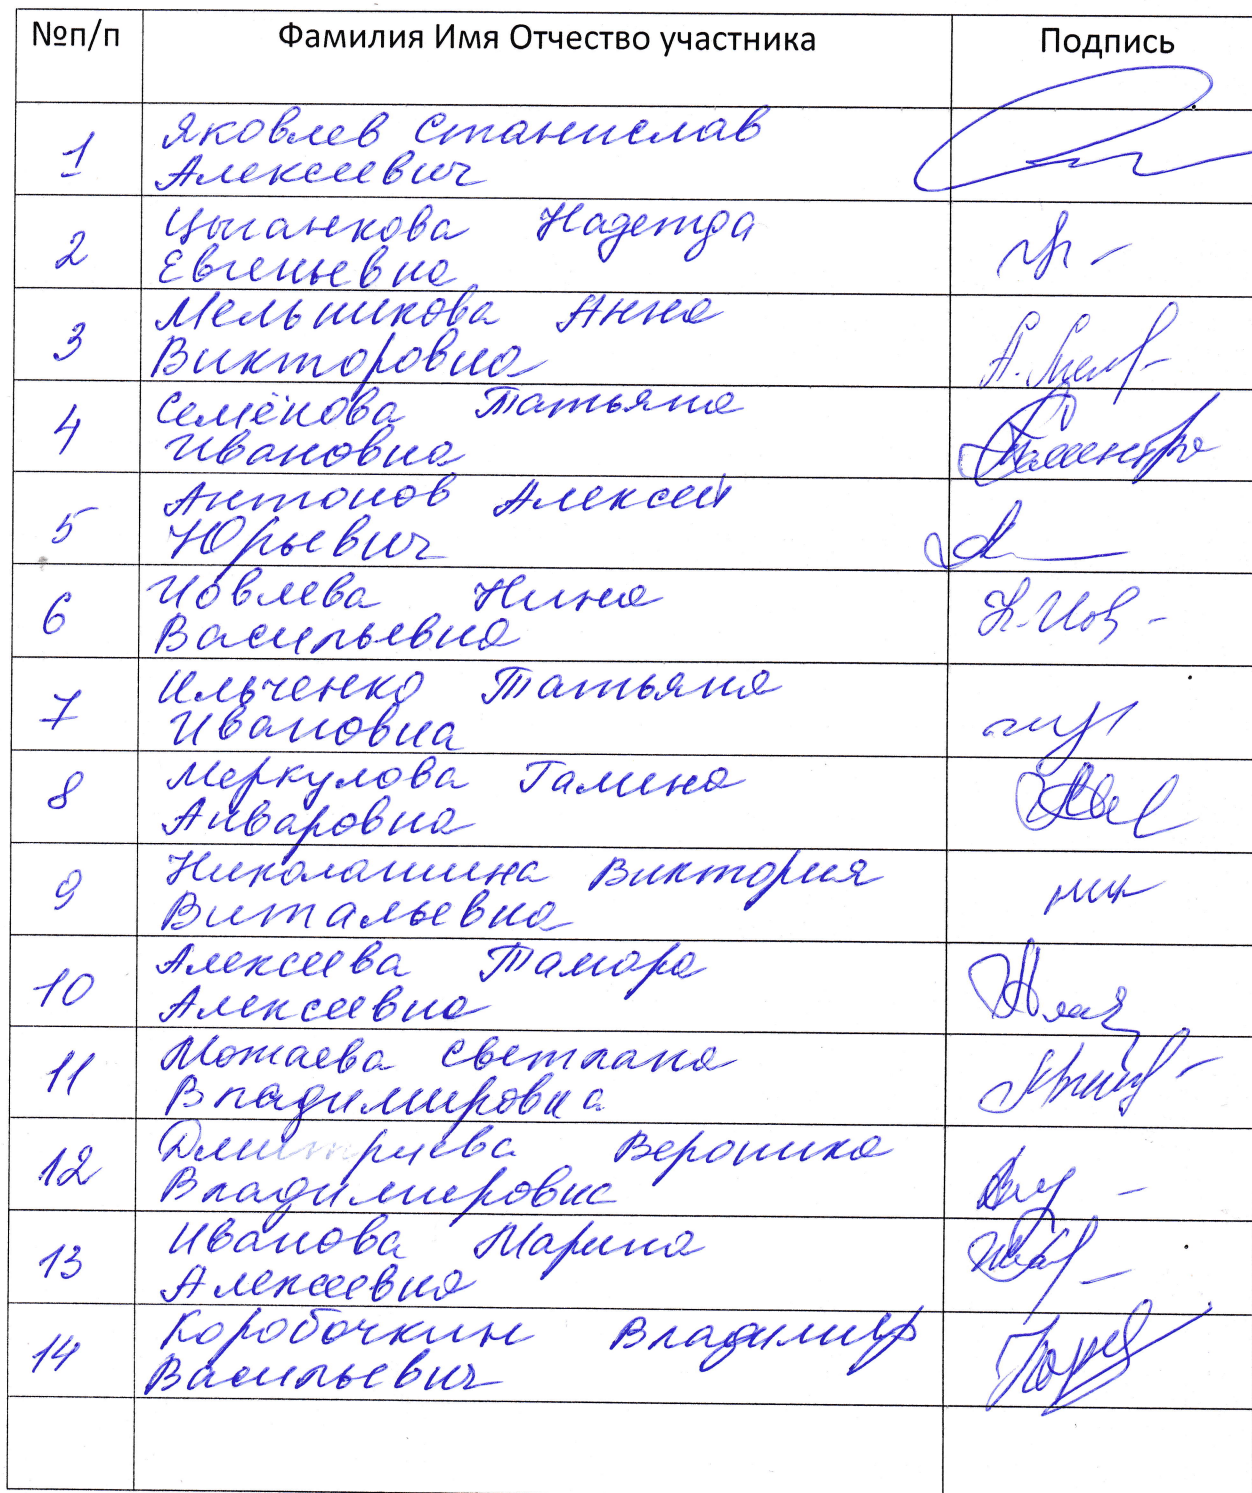 №п/п Фамилия Имя Отчество участника Подпись
1 Яковлев Станислав
Алексеевич
2 Цыганкова Надежда
Евгеньевна
3 Мельникова Анна
Викторовна
А. Мел
4 Семёнова Татьяна
Ивановна
5 Антонов Алексей
Юрьевич
6 Иовлева Нина
Васильевна
Н. Иов
7 Ильченко Татьяна
Ивановна
8 Меркулова Галина
Анваровна
9 Николашина Виктория
Витальевна
10 Алексеева Тамара
Алексеевна
11 Можаева Светлана
Владимировна
12 Дмитриева Вероника
Владимировна
13 Иванова Марина
Алексеевна
14 Коробочкин Владимир
Васильевич